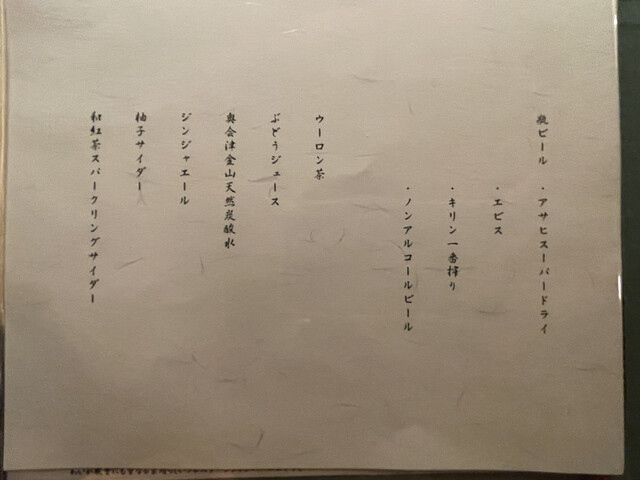 瓶ビール ・アサヒスーパードライ
・エビス
・キリン一番搾り
・ノンアルコールビール
ウーロン茶
ぶどうジュース
奥会津金山天然炭酸水
ジンジャエール
柚子サイダー
和紅茶スパークリングサイダー